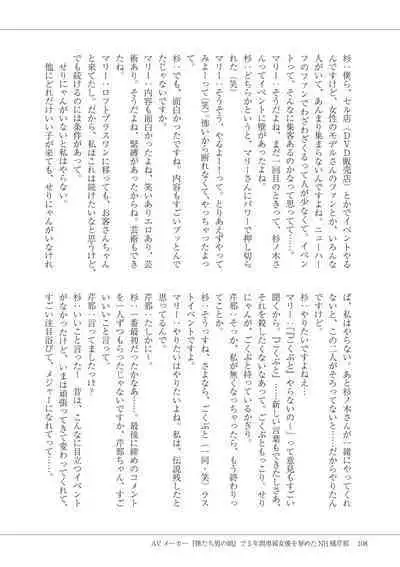 杉：僕ら、セル店（ＤＶＤ販売店）とかでイベントやる
んですけど、女性のモデルさんのファンとか、いろんな
人がいて、あんまり集まらないんですよね。ニューハー
フのファンでわざわざくるって人が少なくて。イベン
トって、そんなに集客あるのかなって思ってて……。
マリー：そうだよね、まだ一回目のときって、杉ノ木さ
んってイベントに壁があったよね。
杉：どちらかというと、マリーさんにパワーで押し切ら
れた（笑）
マリー：そうそう、やるよー！って、とりあえずやって
みよーって（笑）怖いから断れなくて、やっちゃったよっ
たじゃないですか。
杉：でも、面白かったですね。内容もすごいブッとんで
マリー：内容も面白かったよね、笑いありエロあり、芸
術あり。そうだよね、緊縛があったからね。芸術もでき
たね。
マリー：ロフトプラスワンに移っても、お客さんちゃん
と来てたし。だから、私はこれは続けたいなと思うけど、
でも続けるのには条件があって、
せりにゃんがいないと私はやらない。
他にどれだけいい子が来ても、せりにゃんがいなけれ
ば、私はやらない。あと杉ノ木さんが一緒にやってくれ
ないと、この二人がそろってないと……だからやりたん
ですけど。
杉：やりたいですよねえ…
マリー：「『ごくぶと』やらないの～」って意見もすごい
聞くから。『ごくぶと』……新しい言葉もできたしさあ、
それを殺したくないなあって、ごくぶともっこり、せり
にゃんが、ごくぶと持っているから。
芹那：そっか、私が無くなっちゃったら、もう終わりっ
てことか。
杉：そうっすね、さよなら、ごくぶと（一同・笑）ラス
トイベントですよ。
マリー：やりたいはやりたいよね。私は、伝説残したと
思ってるんで。
芹那：たしかにー。
杉：一番最初だったかなあ……。最後に締めのコメント
を一人ずつもらったじゃないですか、芹那ちゃん、すご
いいいこと言って。
芹那：言ってましたっけ？
杉：いいこと言ったー！　昔は、こんなに目立つイベント
がなかったけど、いまは頑張ってきて変わってくれて、
すごい注目浴びて、メジャーになれてって……。
AVメーカー『俺たち男の娘』で5年間専属女優を努めたNH橘芹那　108